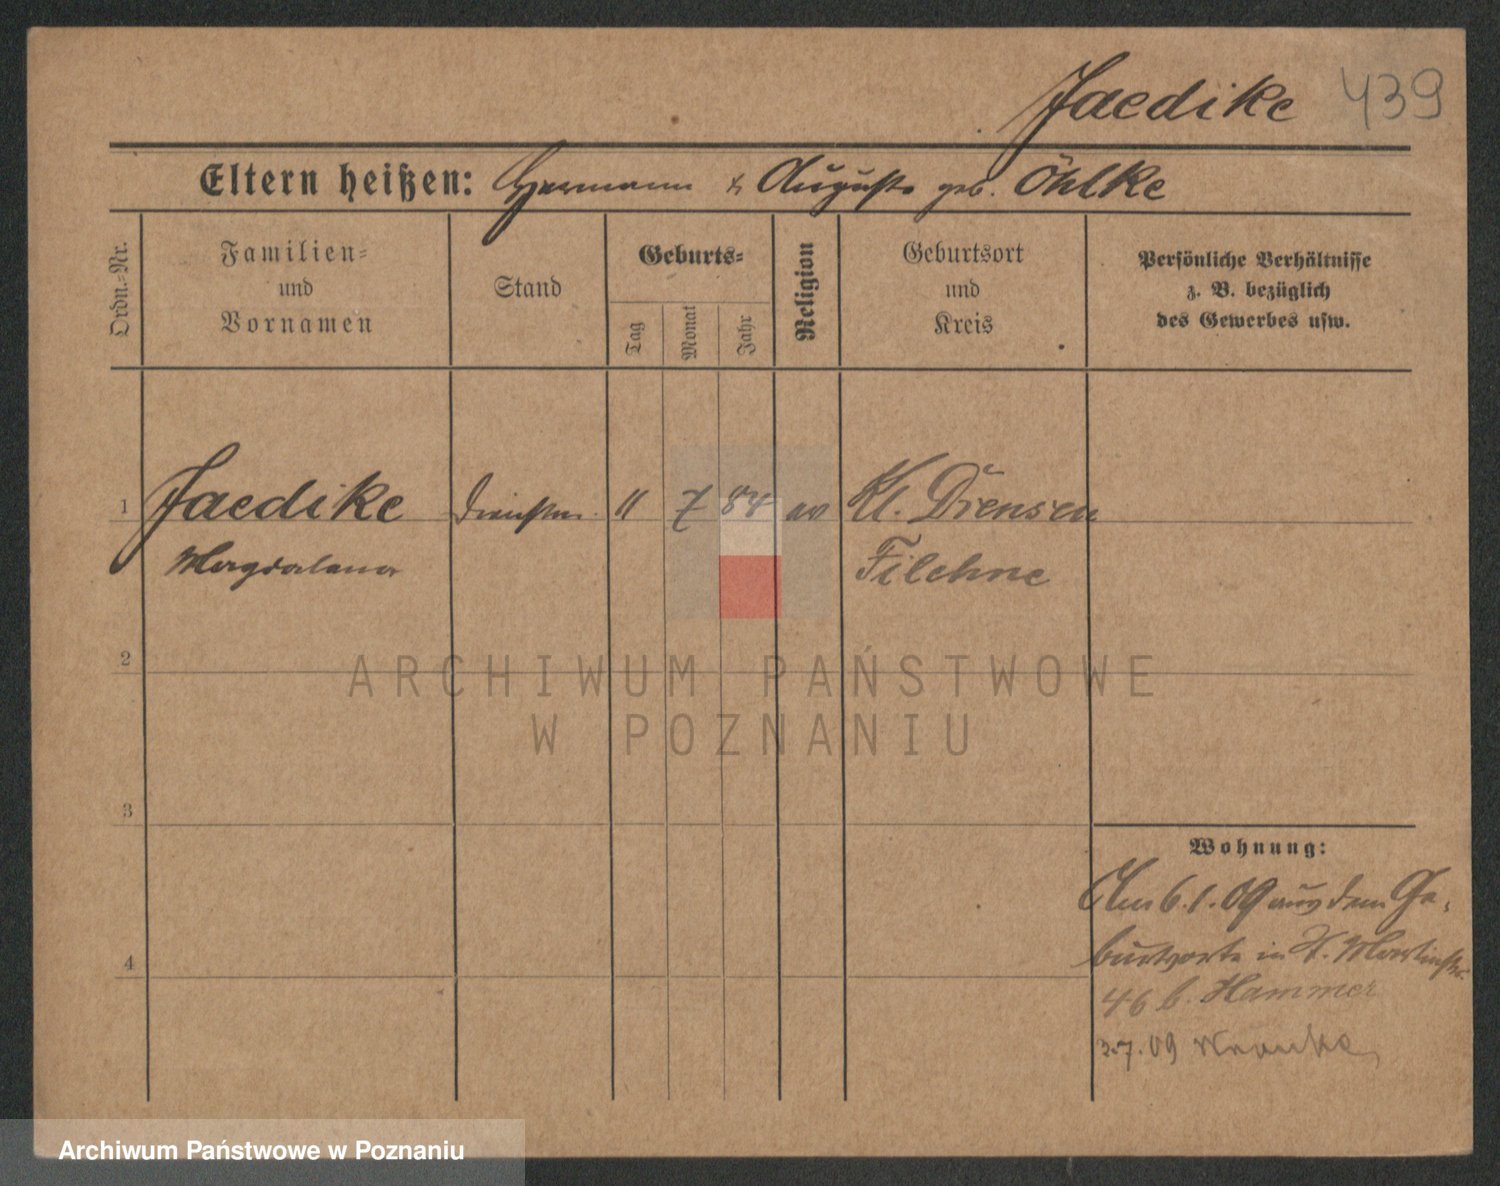 Jaedike 439
Eltern heißen: Hermann & Auguste geb. Öhlke
Ordn.-Nr.
Familien-
und
Vornamen
Stand
Geburts-
Tag
Monat
Jahr
Religion
Geburtsort
und
Kreis
Persönliche Verhältnisse
z. B. bezüglich
des Gewerbes usw.
1 Jaedike 11 7 84 ev Kl. Drensen
Magdalena Filehne
2
3
4
ARCHIWUM PAŃSTWOWE
W POZNANIU
Wohnung:
Am 6.1.09 aus dem Ge-
burtsorte in St. Martinstr.
46 b. Hammer
3.7.09
Archiwum Państwowe w Poznaniu